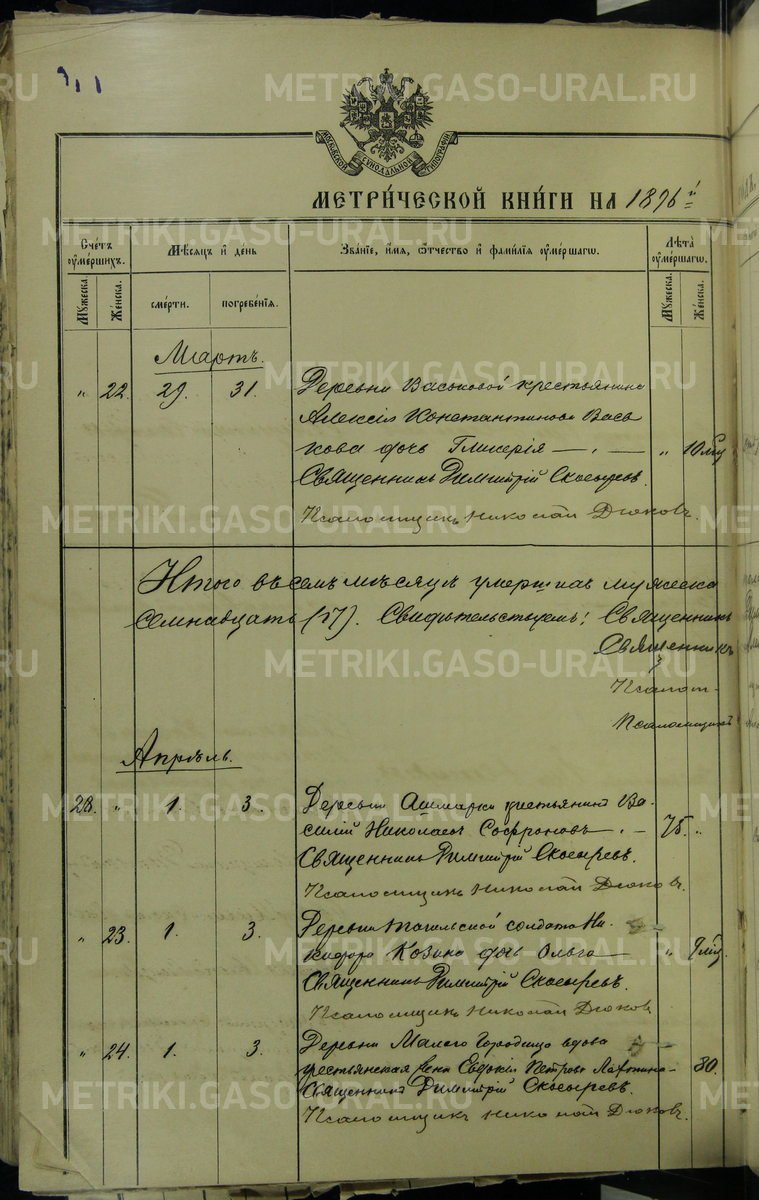 МОСКОВСКОЙ СУНОДАЛЬНОЙ ТИПОГРАФИИ
МЕТРИ́ЧЕСКОЙ КНИ́ГИ НА 1896 й
Сче́тъ ᲂу҆ме́ршихъ.
Мѣ́сяцъ и҆ де́нь
Зва́нїе, и҆́мя, ѻ҆́тчество и҆ фами́лїя ᲂу҆ме́ршагѡ.
Лѣ́та ᲂу҆ме́ршагѡ.
Мꙋ́жеска.
Же́нска.
сме́рти.
погребе́нїя.
Мꙋ́жеска.
Же́нска.
Мартъ.
" 22. 29. 31. Деревни Васьковой крестьянина
Алексія Константинова Вась
кова дочь Гликерія — " — " 10 мѣс
Священникъ Димитрій Скосыревъ.
Псаломщикъ Николай Дюковъ.
Итого въ семъ мѣсяцѣ умершихъ мужеска
семнадцать (17). Свидѣтельствуемъ: Священникъ
Священникъ
Псалом-
Псаломщикъ
Апрѣль.
28. " 1. 3. Деревни Ашмарки крестьянинъ Ва-
силій Николаевъ Софроновъ. — 75. "
Священникъ Димитрій Скосыревъ.
Псаломщикъ Николай Дюковъ.
" 23. 1. 3. Деревни солдата Ни-
кифора Козина дочь Ольга — "
Священникъ Димитрій Скосыревъ.
Псаломщикъ Николай Дюковъ
" 24. 1. 3. Деревни Малаго Городища вдова
крестьянская жена Евдокія Петрова 80.
Священникъ Димитрій Скосыревъ.
Псаломщикъ Николай Дюковъ.
METRIKI.GASO-URAL.RU